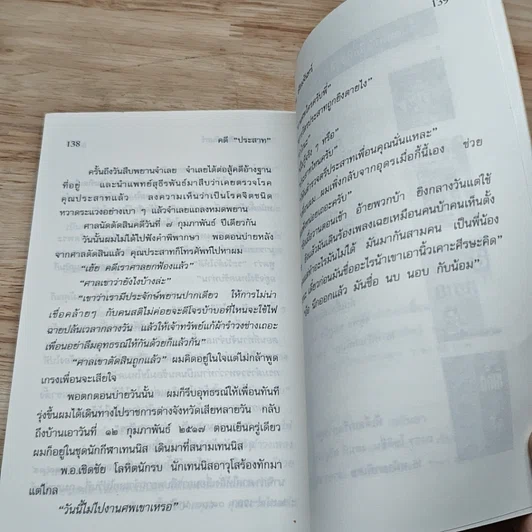 138
คดี "ประสาท"
ครั้นถึงวันสืบพยานจำเลย จำเลยได้ต่อสู้คดีอ้างฐาน
ที่อยู่ และนำแพทย์สุธีรพันธ์มาสืบว่าเคยตรวจโรค
คุณประสาทแล้ว ลงความเห็นว่าเป็นโรคจิตชนิด
หวาดระแวงอย่างเบา ๆ แล้วจำเลยแถลงหมดพยาน
ศาลนัดตัดสินคดีวันที่ ๗ กุมภาพันธ์ ปีเดียวกัน
วันนั้นผมไม่ได้ไปฟังคำพิพากษา พอตอนบ่ายหลัง
จากศาลตัดสินแล้ว คุณประสาทก็โทรศัพท์ไปหาผม
"เฮ้ย คดีเราศาลยกฟ้องแล้ว"
"ศาลเขาว่ายังไงบ้างล่ะ"
"เขาว่าเรามีประจักษ์พยานปากเดียว ให้การไม่น่า
เชื่อคล้ายๆ กับคนสติไม่ค่อยจะดีโจรบ้าบอที่ไหนจะใช้ไฟ
ฉายปล้นเวลากลางวัน แล้วให้เจ้าทรัพย์แก้ผ้ารำวงช่างเถอะ
เพื่อนอย่าลืมอุทธรณ์ให้กันด้วยก็แล้วกัน"
"ศาลเขาตัดสินถูกแล้ว" ผมคิดอยู่ในใจแต่ไม่กล้าพูด
เกรงเพื่อนจะเสียใจ
พอตกตอนบ่ายวันนั้น ผมก็รีบอุทธรณ์ให้เพื่อนทันที
รุ่งขึ้นผมได้เดินทางไปราชการต่างจังหวัดเสียหลายวัน กลับ
ถึงบ้านเอาวันที่ ๑๒ กุมภาพันธ์ ๒๕๑๗ ตอนเย็นครู่เดียว
ผมก็อยู่ในชุดนักกีฬาเทนนิส เดินมาที่สนามเทนนิส
พ.อ.เชิดชัย โลหิตนักรบ นักเทนนิสอาวุโสร้องทักมา
แต่ไกล
"วันนี้ไม่ไปงานศพเขาเหรอ"
139
ประสาทถูกยิงตายไง"
ๆ หรือ"
ตำรวจตรีประสาทเพื่อนคุณนั่นแหละ"
ผมเพิ่งกลับจากอุดรเมื่อกี้นี้เอง ช่วย
เถอะครับ"
งานตอนเช้า อ้ายพวกบ้า ยิงกลางวันแต่ใช้
แล้วมันเดินร้องเพลงเฉยเหมือนคนบ้าคนเห็นตั้ง
ทำอะไรมันไม่ได้ มันมากันสามคน เป็นพี่น้อง
เดี๋ยวก่อนมันชื่ออะไรน้าเขาเอานิ้วเคาะศีรษะคิด"
นึกออกแล้ว มันชื่อ นบ นอบ กับน้อม"